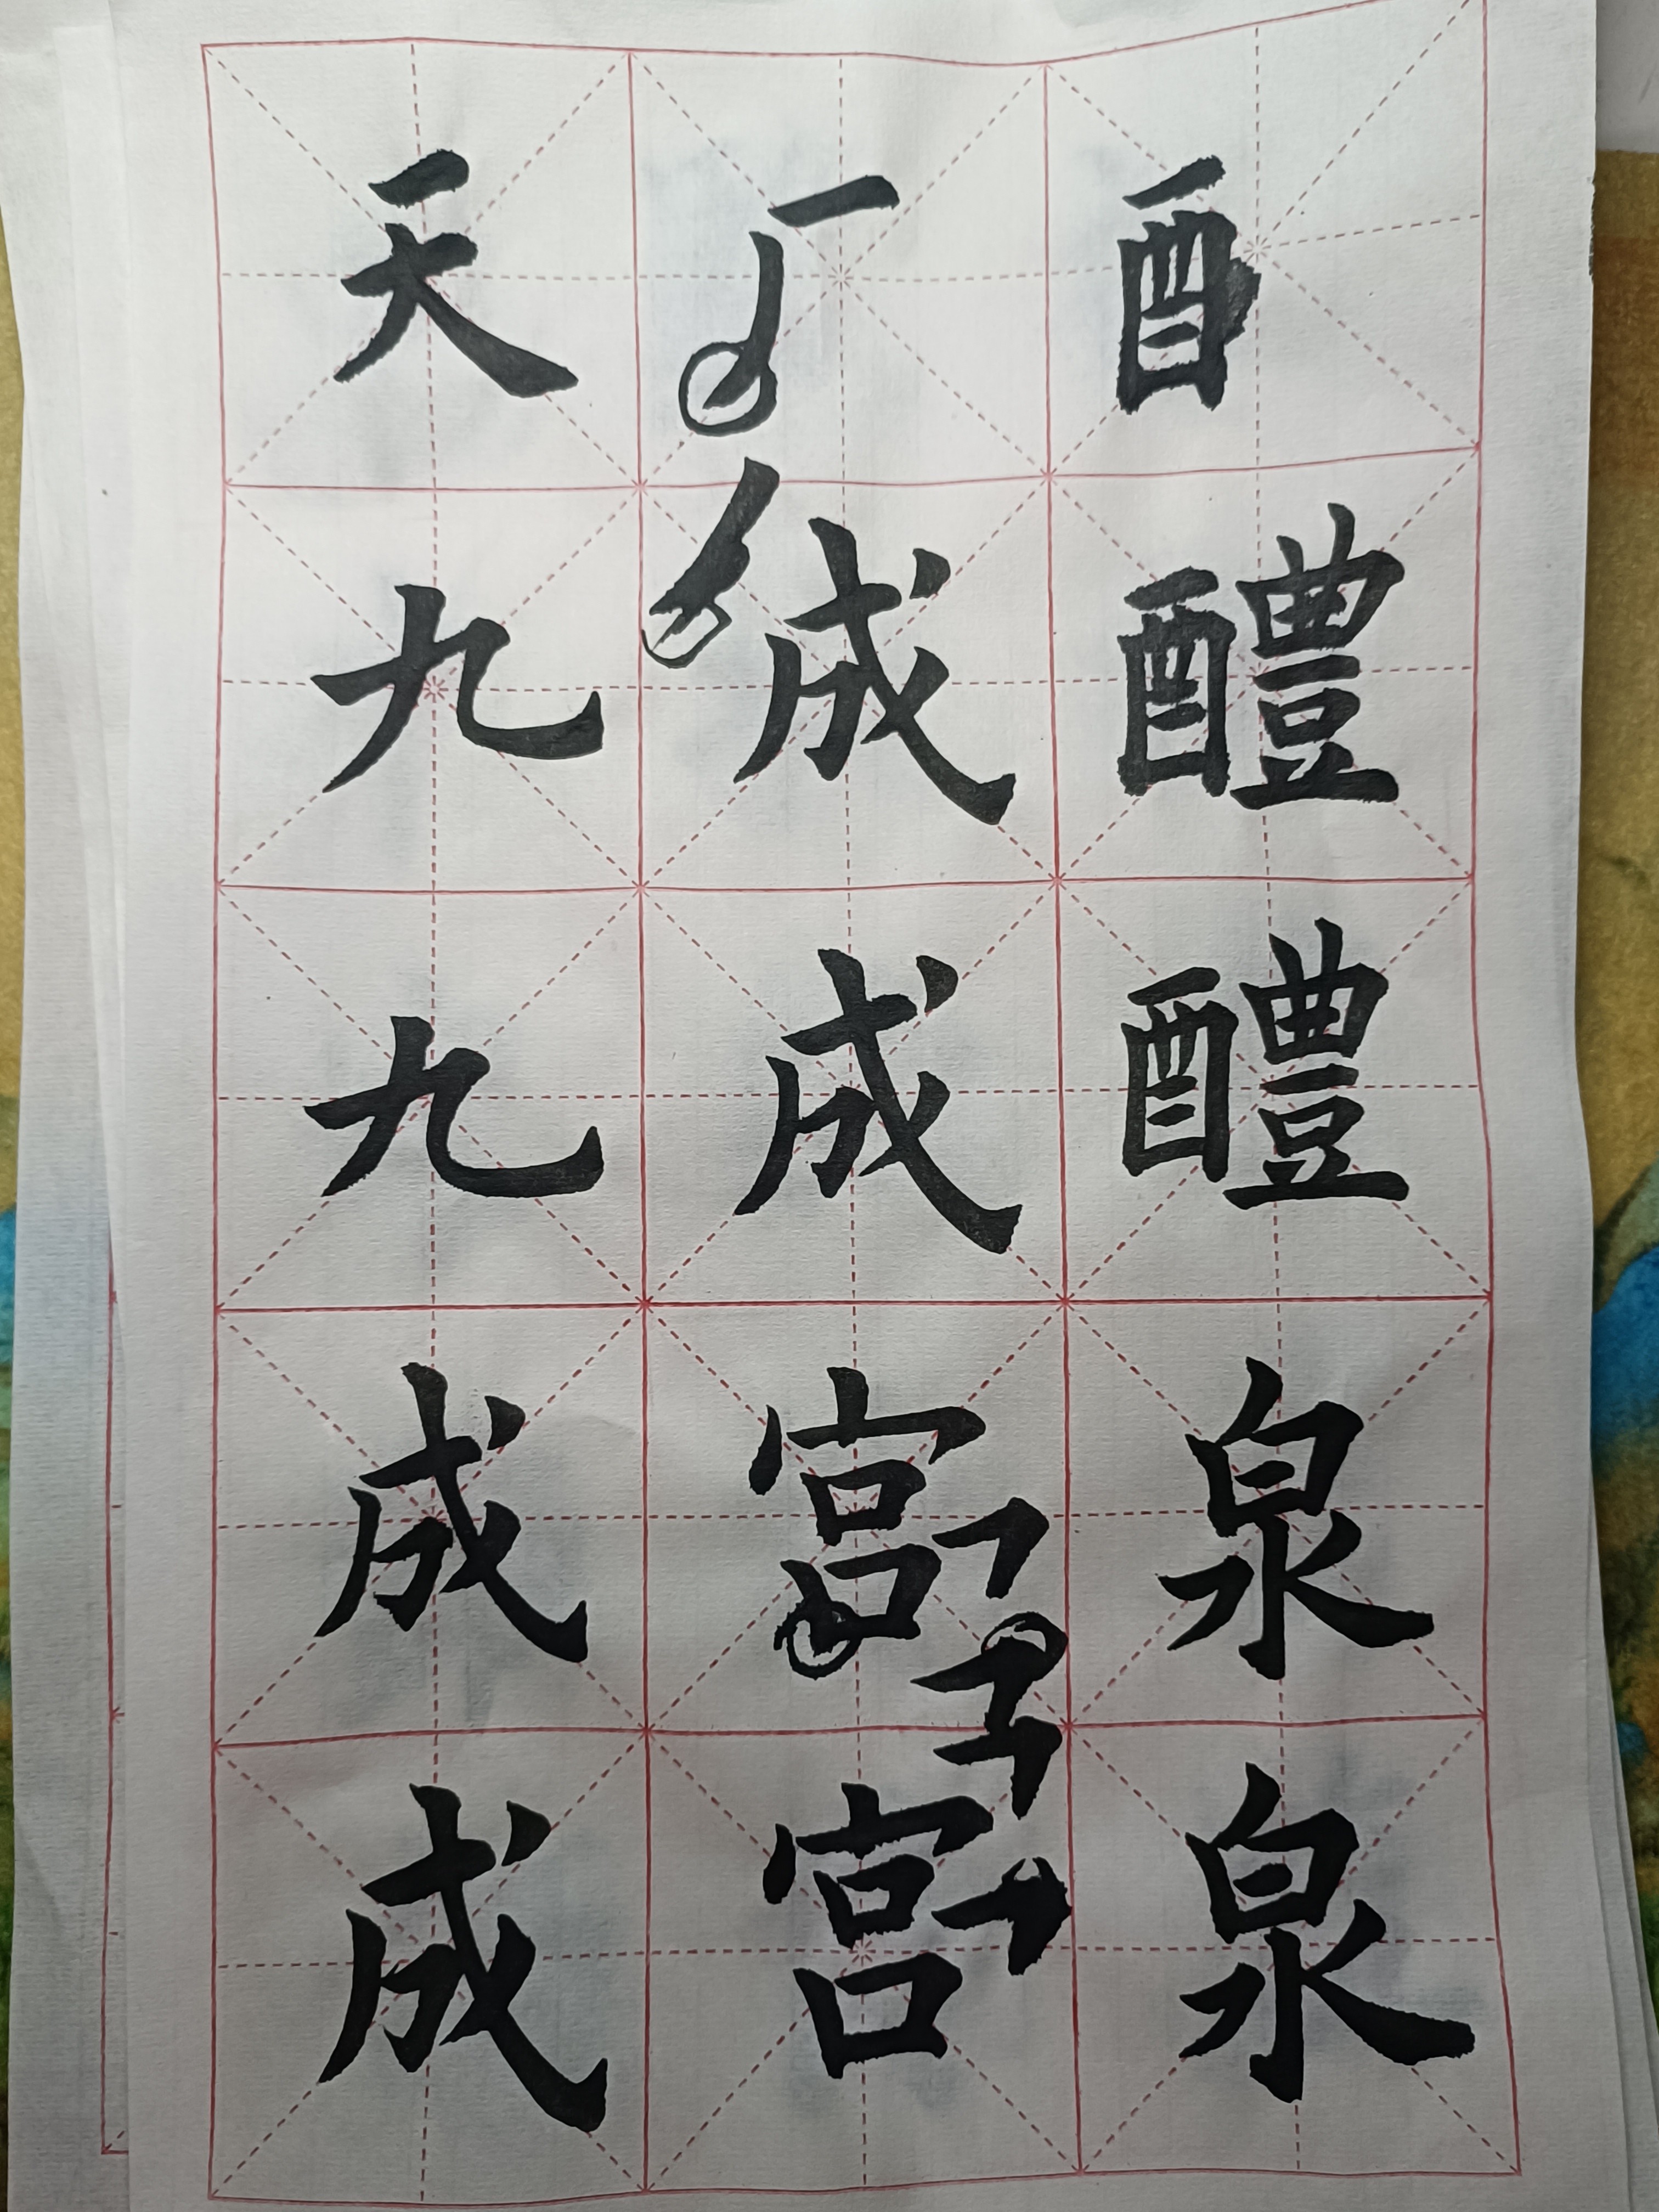 天九九成成
成成宫宫
酉醴醴泉泉